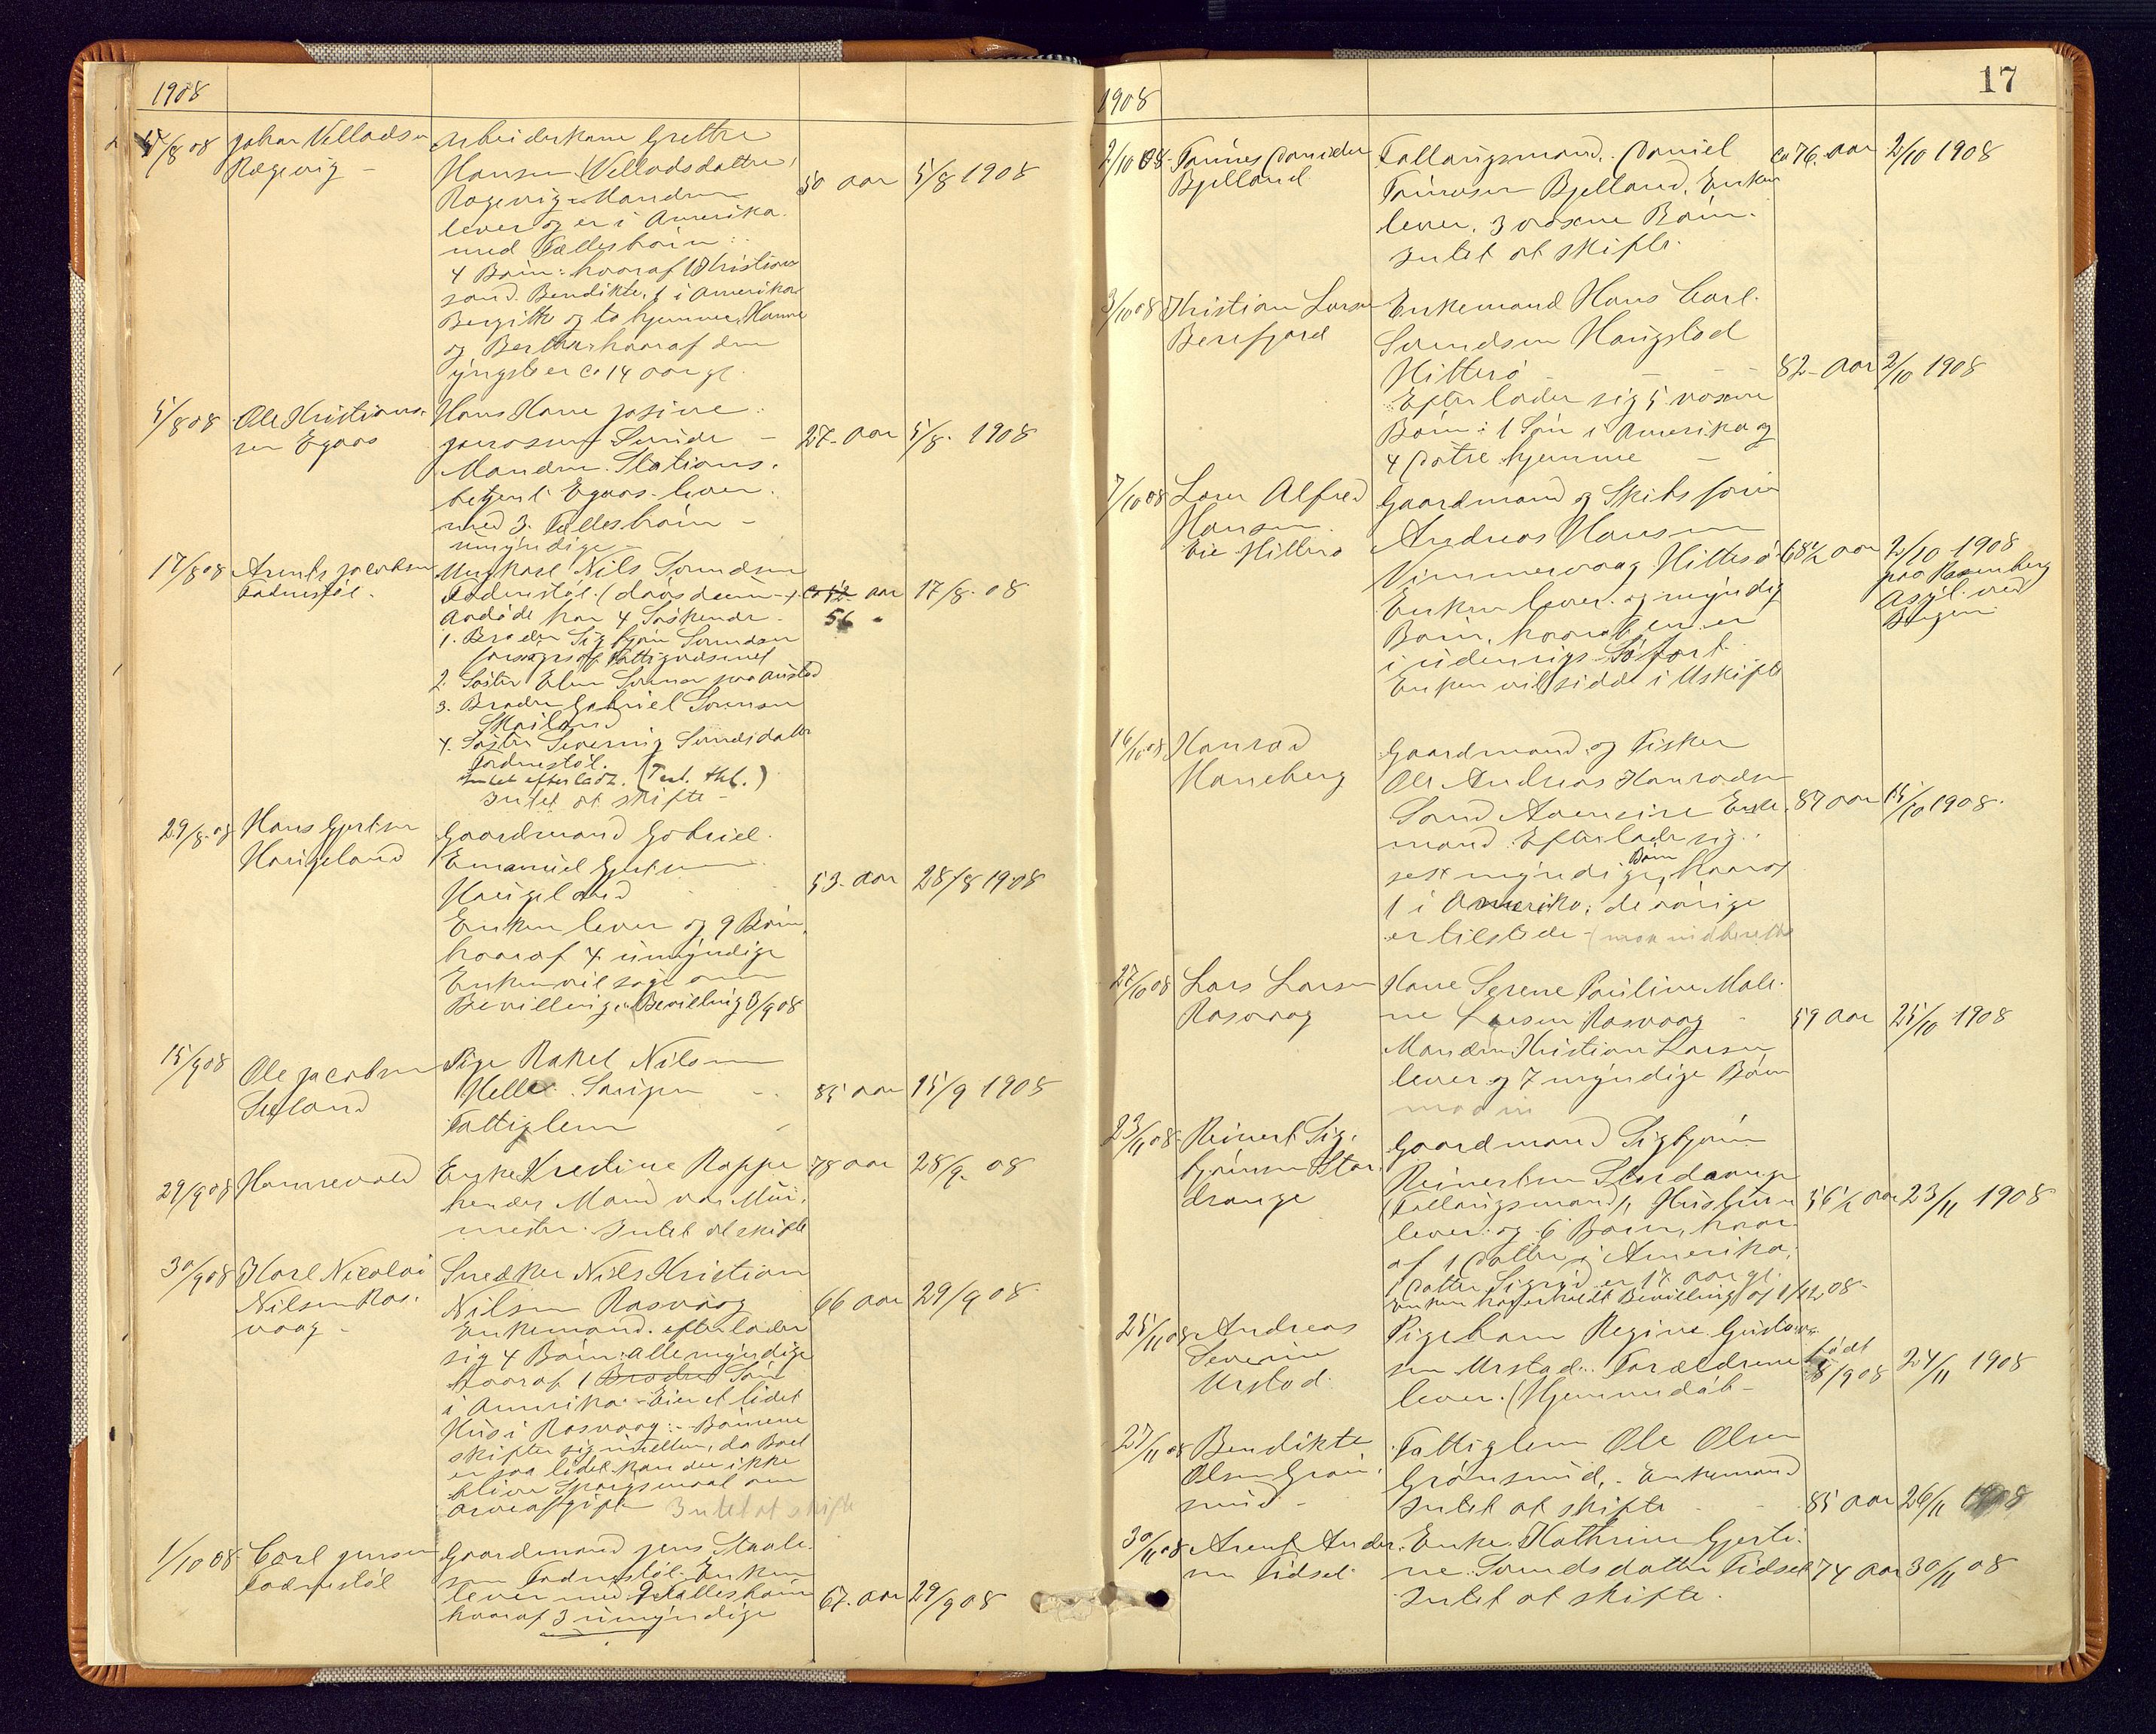 1908
5/8 08 Johan Velladsen
Rægevig -
Arbeiderkone Grethe
Hansen (Velladsdatter)
Rægevig - Manden
lever og er i Amerika
med Fællesbørn:
4 Børn: hvoraf 1 Kristian
sand. Bendikte, 1 i Amerika
Bergitte og to hjemme, Hanne
og Berthe hvoraf den
yngste er ca 14 aar gl.
50 aar 5/8 1908
5/8 08 Ole Kristian-
sen Egaas
Hans Kone Josine
Sunde -
Manden Stations-
betjent Egaas lever
med 3 Fællesbørn -
umyndige -
27 aar 5/8 1908
17/8 08 Arents Jacobsen
Fodnestøl.
Ungkarl Nils Svendsen
Fodnestøl. (døvstum -).
Afdøde har 4 Søskende -
1. Broder Sigbjørn Svendsen
forsørges af Fattigvæsenet
2. Søster Elen paa Austad
3. Broder Gabriel Svensen
Skeiland
4. Søster Severine Svendsdatter
Fodnestøl.
Intet efterladt. (Test. )
Intet at skifte -
ca 52 aar 17/8 08
56 "
29/8 08 Hans Gjertsen
Haugeland
Gaardmand Gabriel
Emanuel Gjertsen
Haugeland
Enken lever og 9 Børn,
hvoraf 4 umyndige
Enken vil søge om
Bevilling. Bevilling 3/9 08
53 aar 28/8 1908
15/9 08 Ole Jacobsen
Seland
Pige Rakel Nilsen
Helle
Fattiglem
85 aar 15/9 1908
29/9 08 Hannevold
Enke Kristine Rappe
hendes Mand var Mur-
mester. Intet at skifte
78 aar 28/9 08
30/9 08 Karl Nicolai
Nilsen Ras-
vaag -
Snedker Nils Kristian
Nilsen Rasvaag
Enkemand efterlader
sig 4 Børn: Alle myndige
hvoraf 1 Broder Søn
i Amerika - Eier et lidet
Hus i Rasvaag: - Børnene
skifter sig imellem, da Boet
er saa lidet kan der ikke
blive Spørgsmaal om
Arveafgift Intet at skifte
66 aar 29/9 08
1/10 08 Carl Jensen
Fodnestøl
Gaardmand Jens Staale-
sen Fodnestøl. Enken
lever med 9 Fællesbørn
hvoraf 3 umyndige
67 aar 29/9 08
17
1908
2/10 08 Tønnes Danielsen
Bjelland
Fallaugsmand Daniel
Tønnesen Bjelland. Enken
lever, 3 voxne Børn.
Intet at skifte.
ca 76 aar 2/10 1908
3/10 08 Kristian Larsen
Berefjord
Enkemand Hans Carl
Svendsen Haugstad
Hitterø
Efterlader sig 5 voxne
Børn: 1 Søn i Amerika og
4 Døtre hjemme -
82 aar 2/10 1908
7/10 08 Laur Alfred
Hansen
Eie Hitterø
Gaardmand og Skibsfører
Andreas Hansen
Vimmervaag Hitterø
Enken lever og myndige
Børn, hvoraf en er
i udenrigs Søfart.
Enken vil sidde i Uskifte
68 1/2 aar 2/10 1908
paa Rosenberg
Asyl ved
Bergen
16/10 08 Konrad
Haneberg
Gaardmand og Fisker
Ole Andreas Konradsen
Sand Enke-
mand. Efterlader sig
sex myndige Børn, hvoraf
1 i Amerika; de øvrige
er tilstede -
87 aar 15/10 1908
27/10 08 Lars Larsen
Rasvaag
Kone Serene Pauline Mali-
ne Larsen Rasvaag
Manden Kristian Larsen
lever og 7 myndige Børn
59 aar 25/10 1908
23/11 08 Reinert Sig-
bjørnsen Stor-
drange
Gaardmand Sigbjørn
Reinertsen Stordrange
(Fallaugsmand), Hustruen
lever og 6 Børn, hvor-
af 1 Datter i Amerika,
1 Datter Sigrid er 17 aar gl.
Enken har erholdt Bevilling af 1/12 08
56 1/2 aar 23/11 1908
25/11 08 Andreas
Severin
Urstad
Pigebarn Regine Gustav-
sen Urstad. Forældrene
lever. (Hjemmedøb -
født
8/9 08 24/11 1908
27/11 08 Bendikte
Olsen Grøn-
smid -
Fattiglem Ole Olsen
Grønsmid, - Enkemand
Intet at skifte
85 aar 26/11 1908
30/11 08 Arent Ander-
sen Fidsel
Enke Kathrine Gjerti-
ne Svendsdatter Fidsel
Intet at skifte.
74 aar 30/11 08